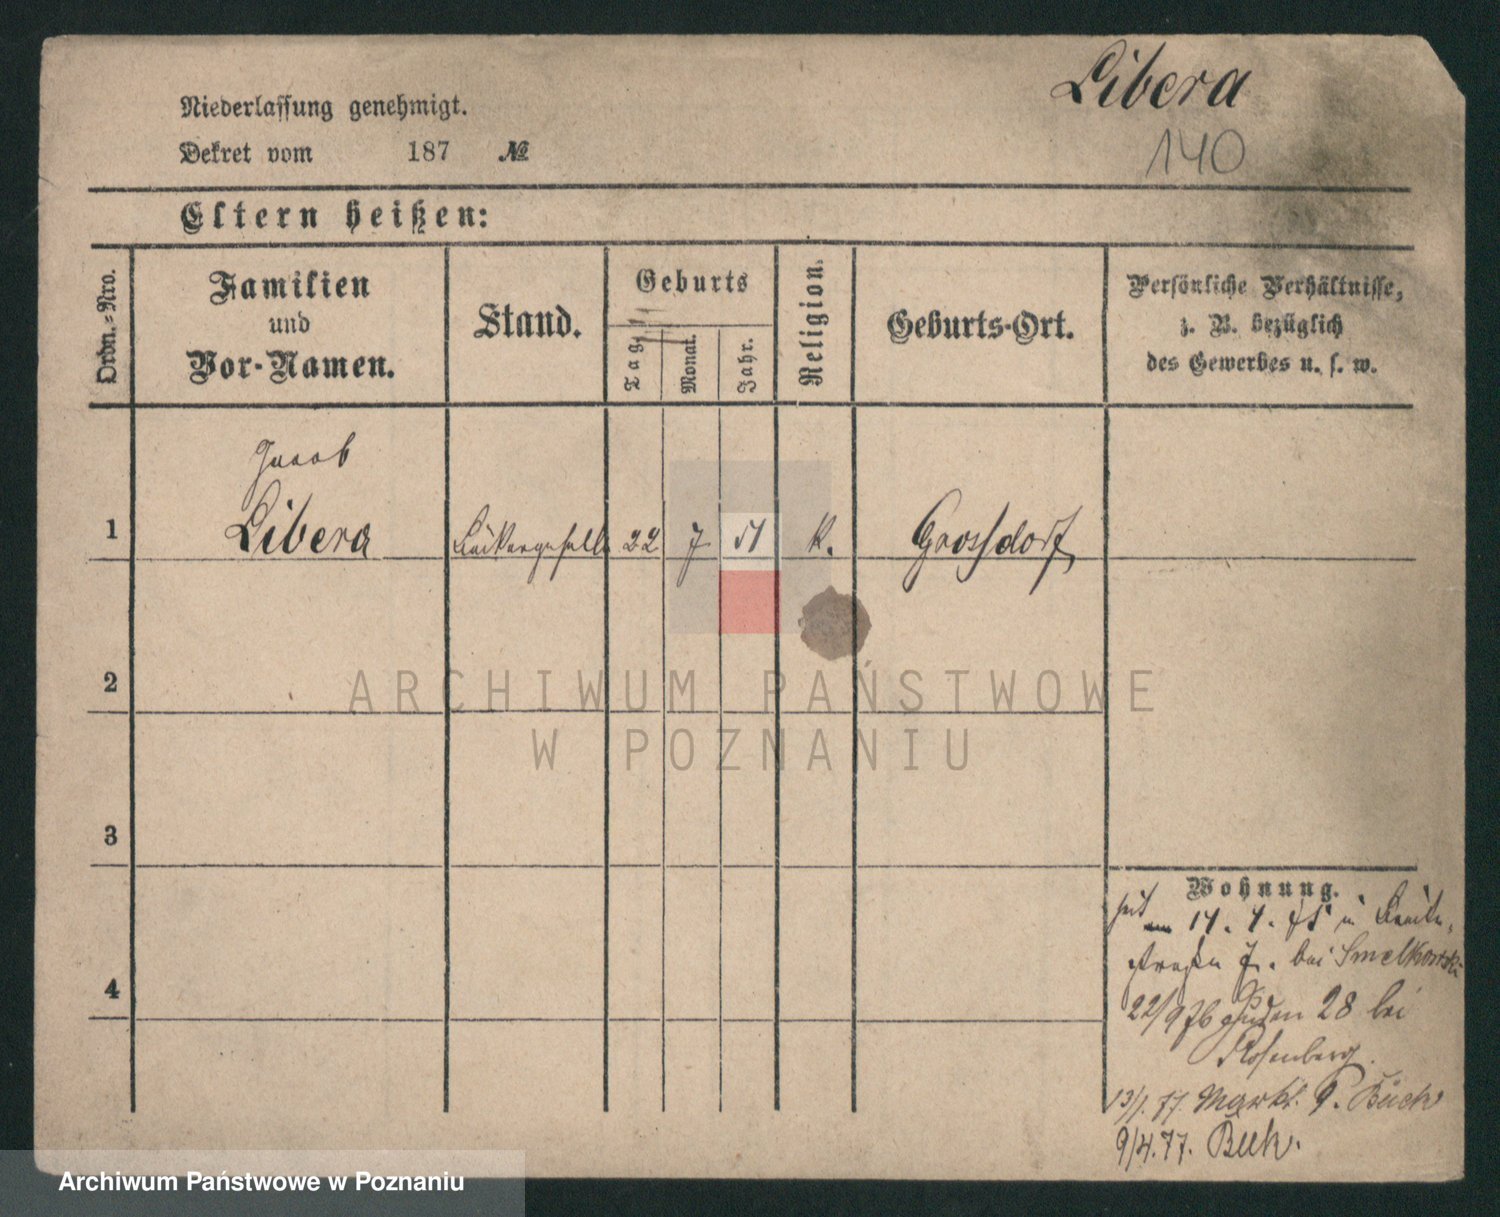 Libera
140
Niederlassung genehmigt.
Dekret vom 187 №
Eltern heißen:
Ordn.-Nro.
Familien
und
Vor-Namen.
Stand.
Geburts
Tag.
Monat.
Jahr.
Religion.
Geburts-Ort.
Persönliche Verhältnisse,
z. B. bezüglich
des Gewerbes u. s. w.
Jacob
1 Libera Bäckergeselle 22 7 51 k. Grossdorf
2
3
4
ARCHIWUM PAŃSTWOWE
W POZNANIU
Wohnung.
seit 14. 4. 75 Breite-
straße 7. bei Smelkowski
22/9 76 28 bei
Rosenberg.
13/1. 77. Markt. 9.
9/4. 77.
Archiwum Państwowe w Poznaniu